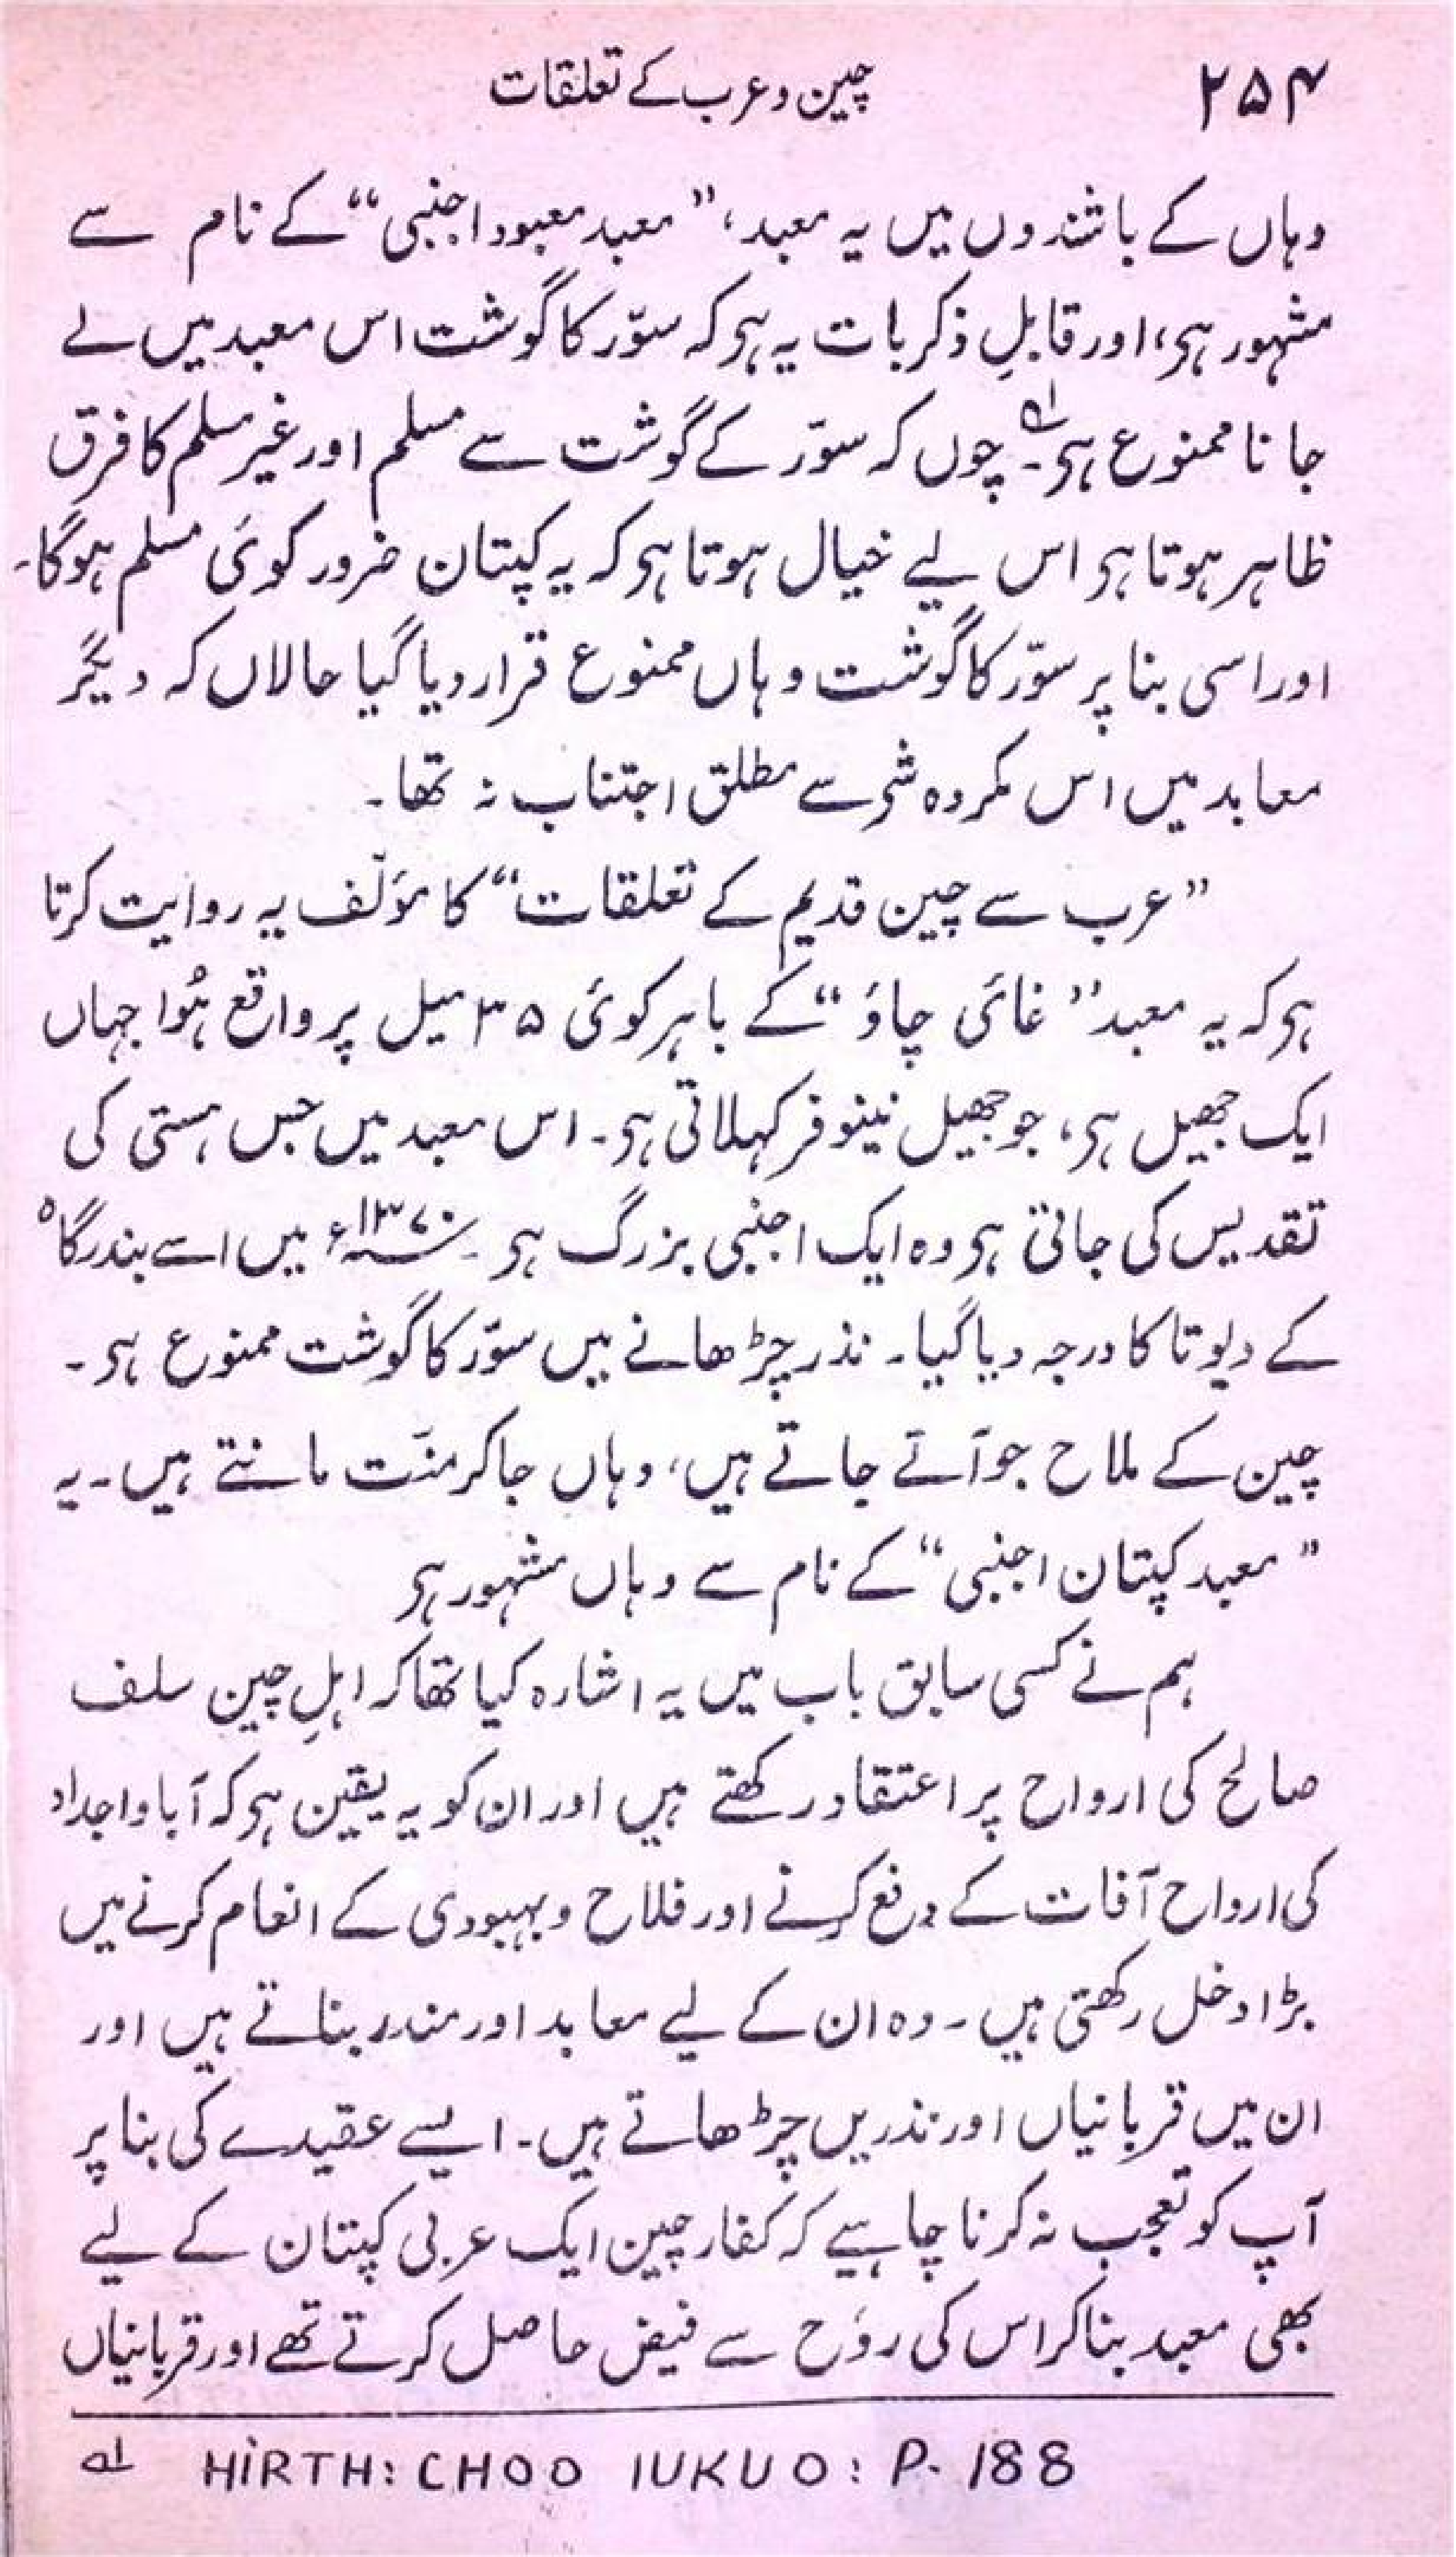 ۲۵۴
چین و عرب کے تعلقات
وہاں کے باشندوں میں یہ معبد، ”معبد معبود اجنبی“ کے نام سے
مشہور ہی، اور قابلِ ذکر بات یہ ہی کہ سوّر کا گوشت اس معبد میں لے
جانا ممنوع ہی۔ لہ چوں کہ سوّر کے گوشت سے مسلم اور غیر مسلم کا فرق
ظاہر ہوتا ہی اس لیے خیال ہوتا ہی کہ یہ کپتان ضرور کوئی مسلم ہوگا۔
اور اسی بنا پر سوّر کا گوشت وہاں ممنوع قرار دیا گیا حالاں کہ دیگر
معابد میں اس مکروہ شی سے مطلق اجتناب نہ تھا۔
”عرب سے چین قدیم کے تعلقات“ کا مؤلّف یہ روایت کرتا
ہی کہ یہ معبد ”غائی چاؤ“ کے باہر کوئی ۳۵ میل پر واقع ہُوا جہاں
ایک جھیل ہی، جو جھیل نینوفر کہلاتی ہی۔ اس معبد میں جس ہستی کی
تقدیس کی جاتی ہی وہ ایک اجنبی بزرگ ہی۔ ۱۳۷۰ء میں اسے بندرگاہ
کے دیوتا کا درجہ دیا گیا۔ نذر چڑھانے میں سوّر کا گوشت ممنوع ہی۔
چین کے ملاح جو آتے جاتے ہیں، وہاں جاکر منّت مانتے ہیں۔ یہ
”معبد کپتان اجنبی“ کے نام سے وہاں مشہور ہی
ہم نے کسی سابق باب میں یہ اشارہ کیا تھا کہ اہلِ چین سلف
صالح کی ارواح پر اعتقاد رکھتے ہیں اور ان کو یہ یقین ہی کہ آبا و اجداد
کی ارواح آفات کے دفع کرنے اور فلاح و بہبودی کے انعام کرنے میں
بڑا دخل رکھتی ہیں۔ وہ ان کے لیے معابد اور مندر بناتے ہیں اور
ان میں قربانیاں اور نذریں چڑھاتے ہیں۔ ایسے عقیدے کی بنا پر
آپ کو تعجب نہ کرنا چاہیے کہ کفار چین ایک عربی کپتان کے لیے
بھی معبد بنا کر اس کی روٗح سے فیض حاصل کرتے تھے اور قربانیاں
لہ HIRTH: CHOO IUKUO: P. 188